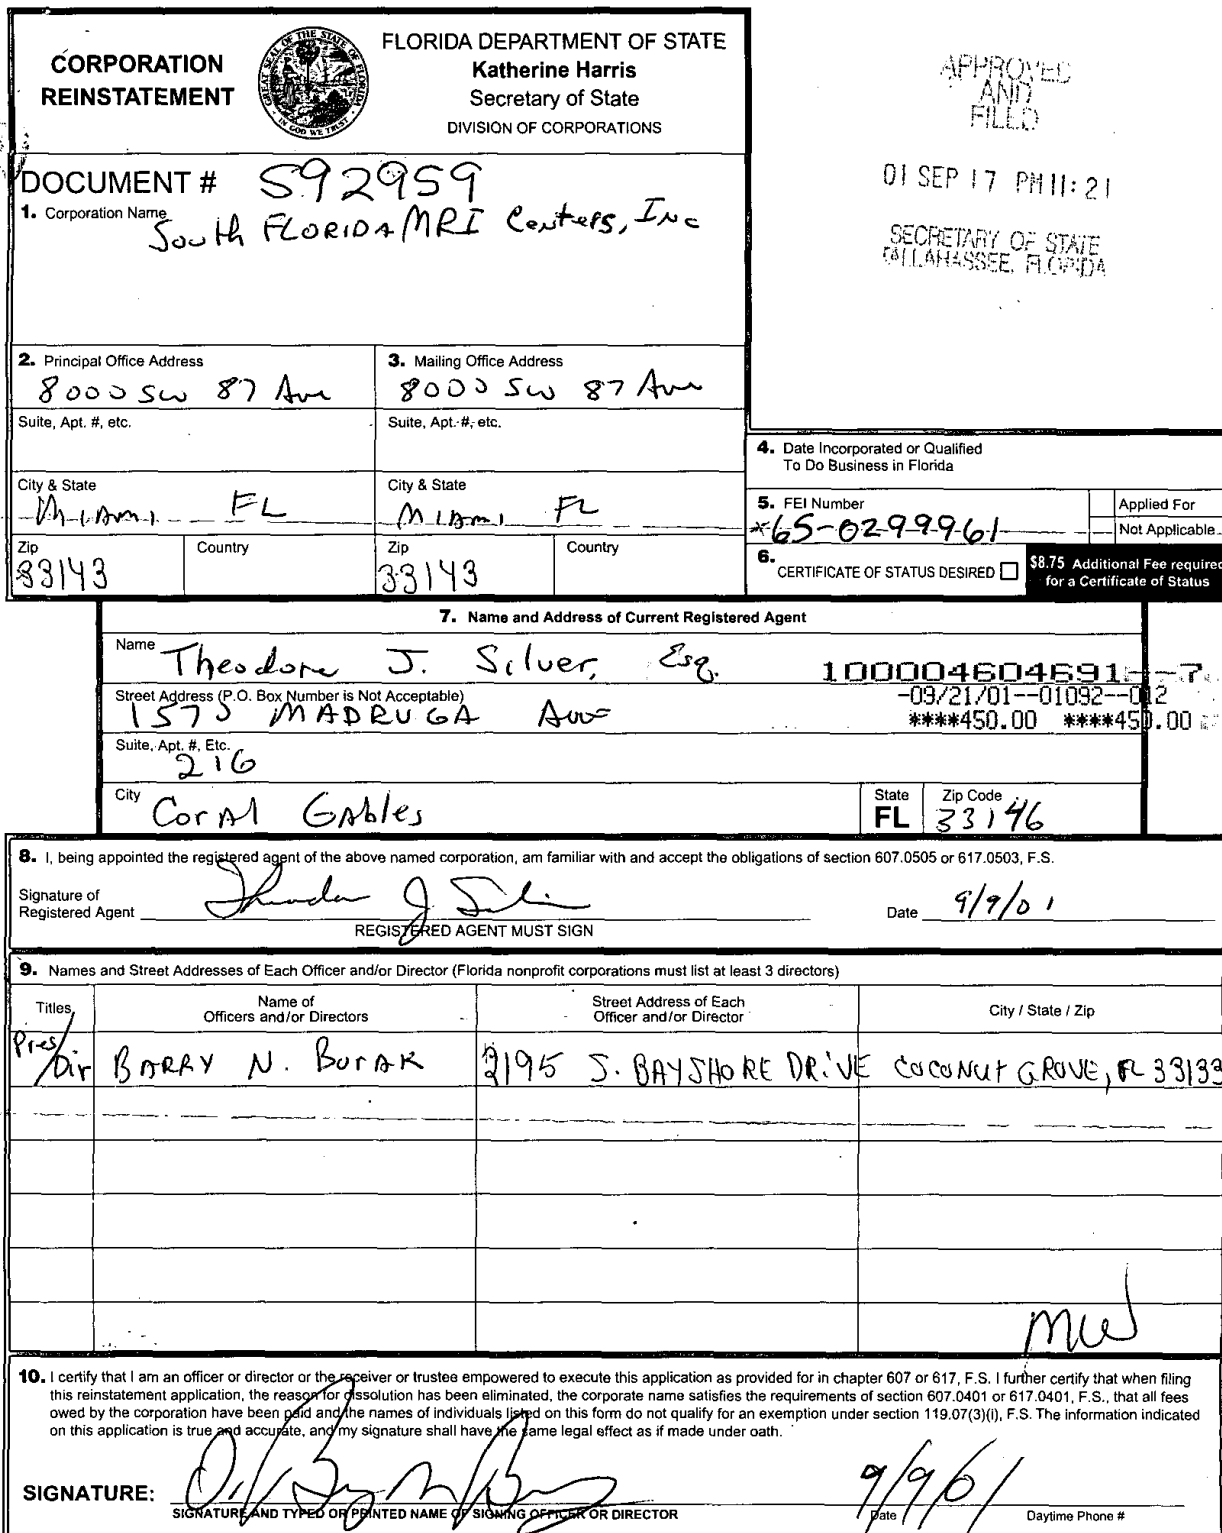 CORPORATION
REINSTATEMENT
GREAT SEAL OF THE STATE OF FLORIDA
IN GOD WE TRUST
FLORIDA DEPARTMENT OF STATE
Katherine Harris
Secretary of State
DIVISION OF CORPORATIONS
APPROVED
AND
FILED
01 SEP 17 PM 11:21
SECRETARY OF STATE
TALLAHASSEE, FLORIDA
DOCUMENT # S92959
1. Corporation Name
South FLORIDA MRI Centers, Inc
2. Principal Office Address
8000 SW 87 Ave
3. Mailing Office Address
8000 SW 87 Ave
Suite, Apt. #, etc.
Suite, Apt. #, etc.
City & State
Miami FL
City & State
Miami FL
Zip
33143
Country
Zip
33143
Country
4. Date Incorporated or Qualified
To Do Business in Florida
5. FEI Number
*65-0299961
Applied For
Not Applicable
6. CERTIFICATE OF STATUS DESIRED
$8.75 Additional Fee required
for a Certificate of Status
7. Name and Address of Current Registered Agent
Name Theodore J. Silver, Esq.
100004604691--7
-09/21/01--01092--012
****450.00 ****450.00
Street Address (P.O. Box Number is Not Acceptable)
1575 MADRUGA Ave
Suite, Apt. #, Etc.
216
City Coral Gables
State
FL
Zip Code
33146
8. I, being appointed the registered agent of the above named corporation, am familiar with and accept the obligations of section 607.0505 or 617.0503, F.S.
Signature of
Registered Agent
Date 9/9/01
REGISTERED AGENT MUST SIGN
9. Names and Street Addresses of Each Officer and/or Director (Florida nonprofit corporations must list at least 3 directors)
Titles
Name of
Officers and/or Directors
Street Address of Each
Officer and/or Director
City / State / Zip
Pres/Dir BARRY N. BURAK 2195 S. BAYSHORE DRIVE COCONUT GROVE, FL 33133
MW
10. I certify that I am an officer or director or the receiver or trustee empowered to execute this application as provided for in chapter 607 or 617, F.S. I further certify that when filing
this reinstatement application, the reason for dissolution has been eliminated, the corporate name satisfies the requirements of section 607.0401 or 617.0401, F.S., that all fees
owed by the corporation have been paid and the names of individuals listed on this form do not qualify for an exemption under section 119.07(3)(i), F.S. The information indicated
on this application is true and accurate, and my signature shall have the same legal effect as if made under oath.
SIGNATURE:
9/9/01
SIGNATURE AND TYPED OR PRINTED NAME OF SIGNING OFFICER OR DIRECTOR
Date
Daytime Phone #